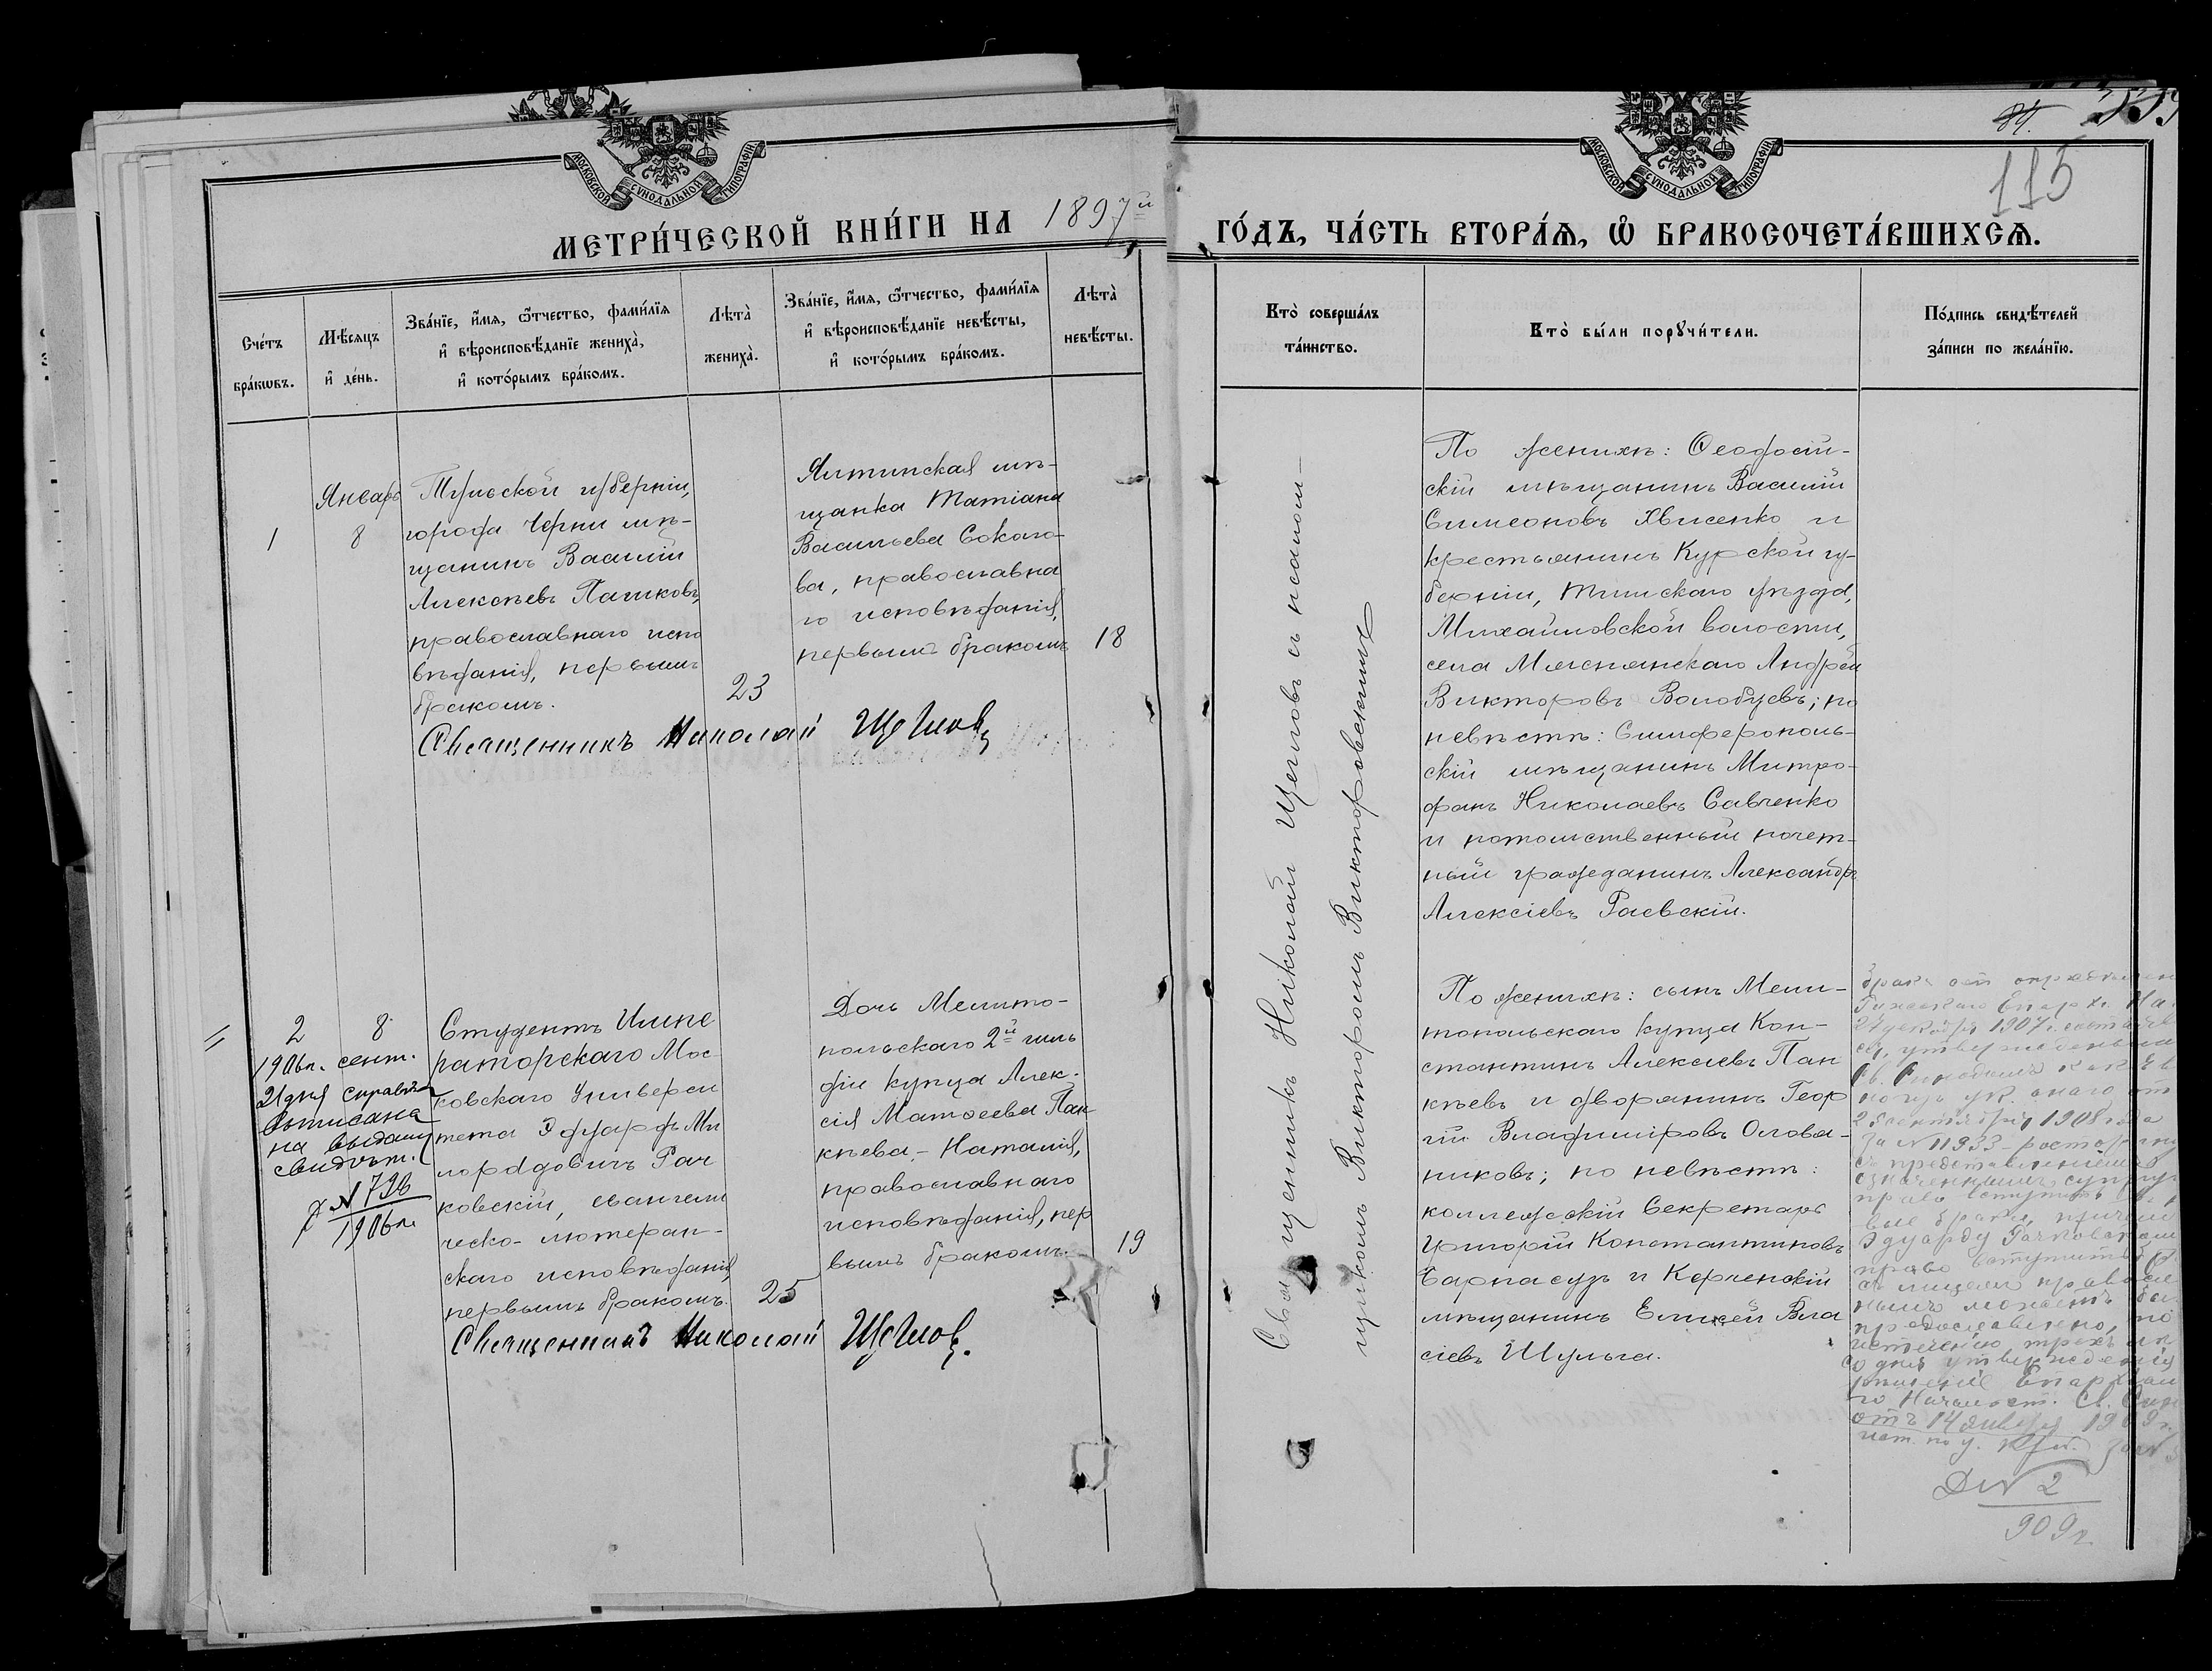 84.
115
МОСКОВСКОЙ СѴНОДАЛЬНОЙ ТИПОГРАФІИ
МОСКОВСКОЙ СѴНОДАЛЬНОЙ ТИПОГРАФІИ
МЕТРИ́ЧЕСКОЙ КНИ́ГИ НА 1897й
ГО́ДЪ, ЧА́СТЬ ВТОРА́Ѧ, Ѡ҆ БРАКОСОЧЕТА́ВШИХСѦ.
Сче́тъ
бра́кѡвъ.
Мѣ́сѧцъ
и҆ де́нь.
Зва́нїе, и҆́мѧ, ѻ҆́тчество, фами́лїѧ
и҆ вѣроисповѣ́данїе жениха̀,
и҆ кото́рымъ бра́комъ.
Лѣта̀
жениха̀.
Зва́нїе, и҆́мѧ, ѻ҆́тчество, фами́лїѧ
и҆ вѣроисповѣ́данїе невѣ́сты,
и҆ кото́рымъ бра́комъ.
Лѣта̀
невѣ́сты.
Кто̀ соверша́лъ
та́инство.
Кто̀ бы́ли порꙋчи́тели.
По́дпись свидѣ́телей
за́писи по жела́нїю.
1
Январь
8
Тульской губерніи,
города Черни мѣ-
щанинъ Василій
Алексѣевъ Пашковъ,
православнаго испо
вѣданія, первымъ
бракомъ.
23
Ялтинская мѣ-
щанка Татіана
Васильева Соколо-
ва, православна
го исповѣданія,
первымъ бракомъ
18
Священникъ Николай Щегловъ
Священникъ Николай Щегловъ съ псалом-
щикомъ Викторомъ Викторовскимъ
По женихѣ: Ѳеодосій-
скій мѣщанинъ Василій
Симеоновъ Хвисенко и
крестьянинъ Курской гу-
берніи, Тимскаго уѣзда,
Михайловской волости,
села Мяснянскаго Андрей
Викторовъ Волобуевъ; по
невѣстѣ: Симферополь-
скій мѣщанинъ Митро-
фанъ Николаевъ Савченко
и потомственный почет-
ный гражданинъ Александръ
Алексіевъ Раевскій.
2
8
1906г. сент.
21 дня справка
выписана
на выдачу
свидѣт.
№ 796
1906г.
Студентъ Импе
раторскаго Мос-
ковскаго Универси
тета Эдуардъ Ми
лорадовичъ Рач
ковскій, евангели
ческо-лютеран-
скаго исповѣданія,
первымъ бракомъ.
25
Дочь Мелито-
польскаго 2й гиль
діи купца Алек-
сія Матѳеева Пан
кѣева - Наталія,
православнаго
исповѣданія, пер
вымъ бракомъ.
19
Священникъ Николай Щегловъ.
По женихѣ: сынъ Мели-
топольскаго купца Кон-
стантинъ Алексіевъ Пан
кѣевъ и дворянинъ Геор
гій Владиміровъ Олова-
никовъ; по невѣстѣ:
коллежскій Секретарь
Григорій Константиновъ
Карпасузъ и Керченскій
мѣщанинъ Елисей Вла
сіевъ Шульга.
бракъ сей опредѣленіемъ
Епарх. На
27 декабря 1907г.
утвержденнымъ
Св. Синодомъ
ук. онаго отъ
1908 года
за № 11933 расторгнутъ
съ предоставленіемъ
означеннымъ супругамъ
право вступить въ
вые браки, причемъ
Эдуарду Рачковскому
право вступить въ бр.
съ лицемъ православ
нымъ можетъ быть
предоставлено, по
истеченіи трехъ лѣтъ
со дня утвержденія
рѣшенія Епархіаль
го Начальст. Св. Синод
отъ 14 января 1909г.
Д № 2
909г.